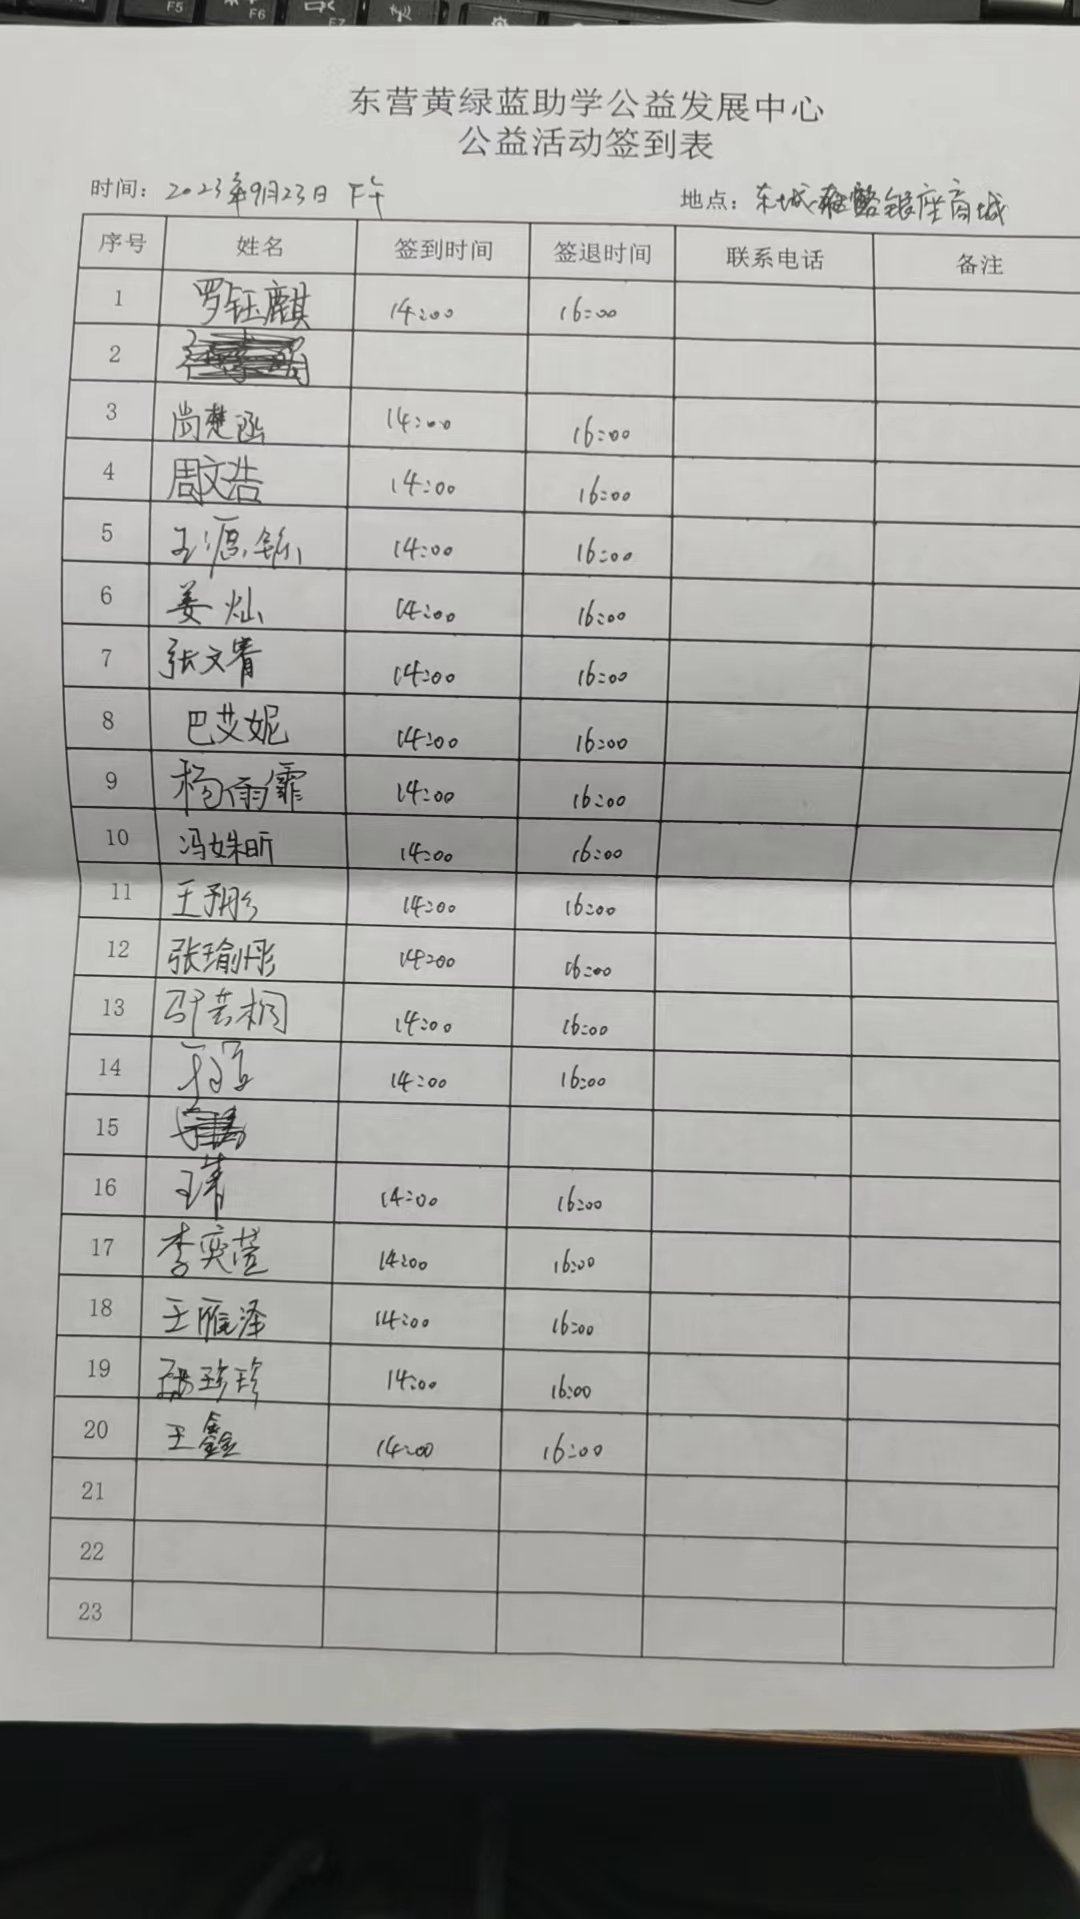 F5 F6 F7
东营黄绿蓝助学公益发展中心
公益活动签到表
时间：2023年9月23日 下午 地点：东城银座商城
序号 姓名 签到时间 签退时间 联系电话 备注
1 罗钰麒 14:00 16:00
2
3 尚楚函 14:00 16:00
4 周文浩 14:00 16:00
5 王源 14:00 16:00
6 姜灿 14:00 16:00
7 张文青 14:00 16:00
8 巴艾妮 14:00 16:00
9 杨雨霏 14:00 16:00
10 冯姝昕 14:00 16:00
11 王 14:00 16:00
12 张瑜彤 14:00 16:00
13 14:00 16:00
14 14:00 16:00
15
16 王 14:00 16:00
17 李奕萱 14:00 16:00
18 王雁泽 14:00 16:00
19 珍珍 14:00 16:00
20 王鑫 14:00 16:00
21
22
23